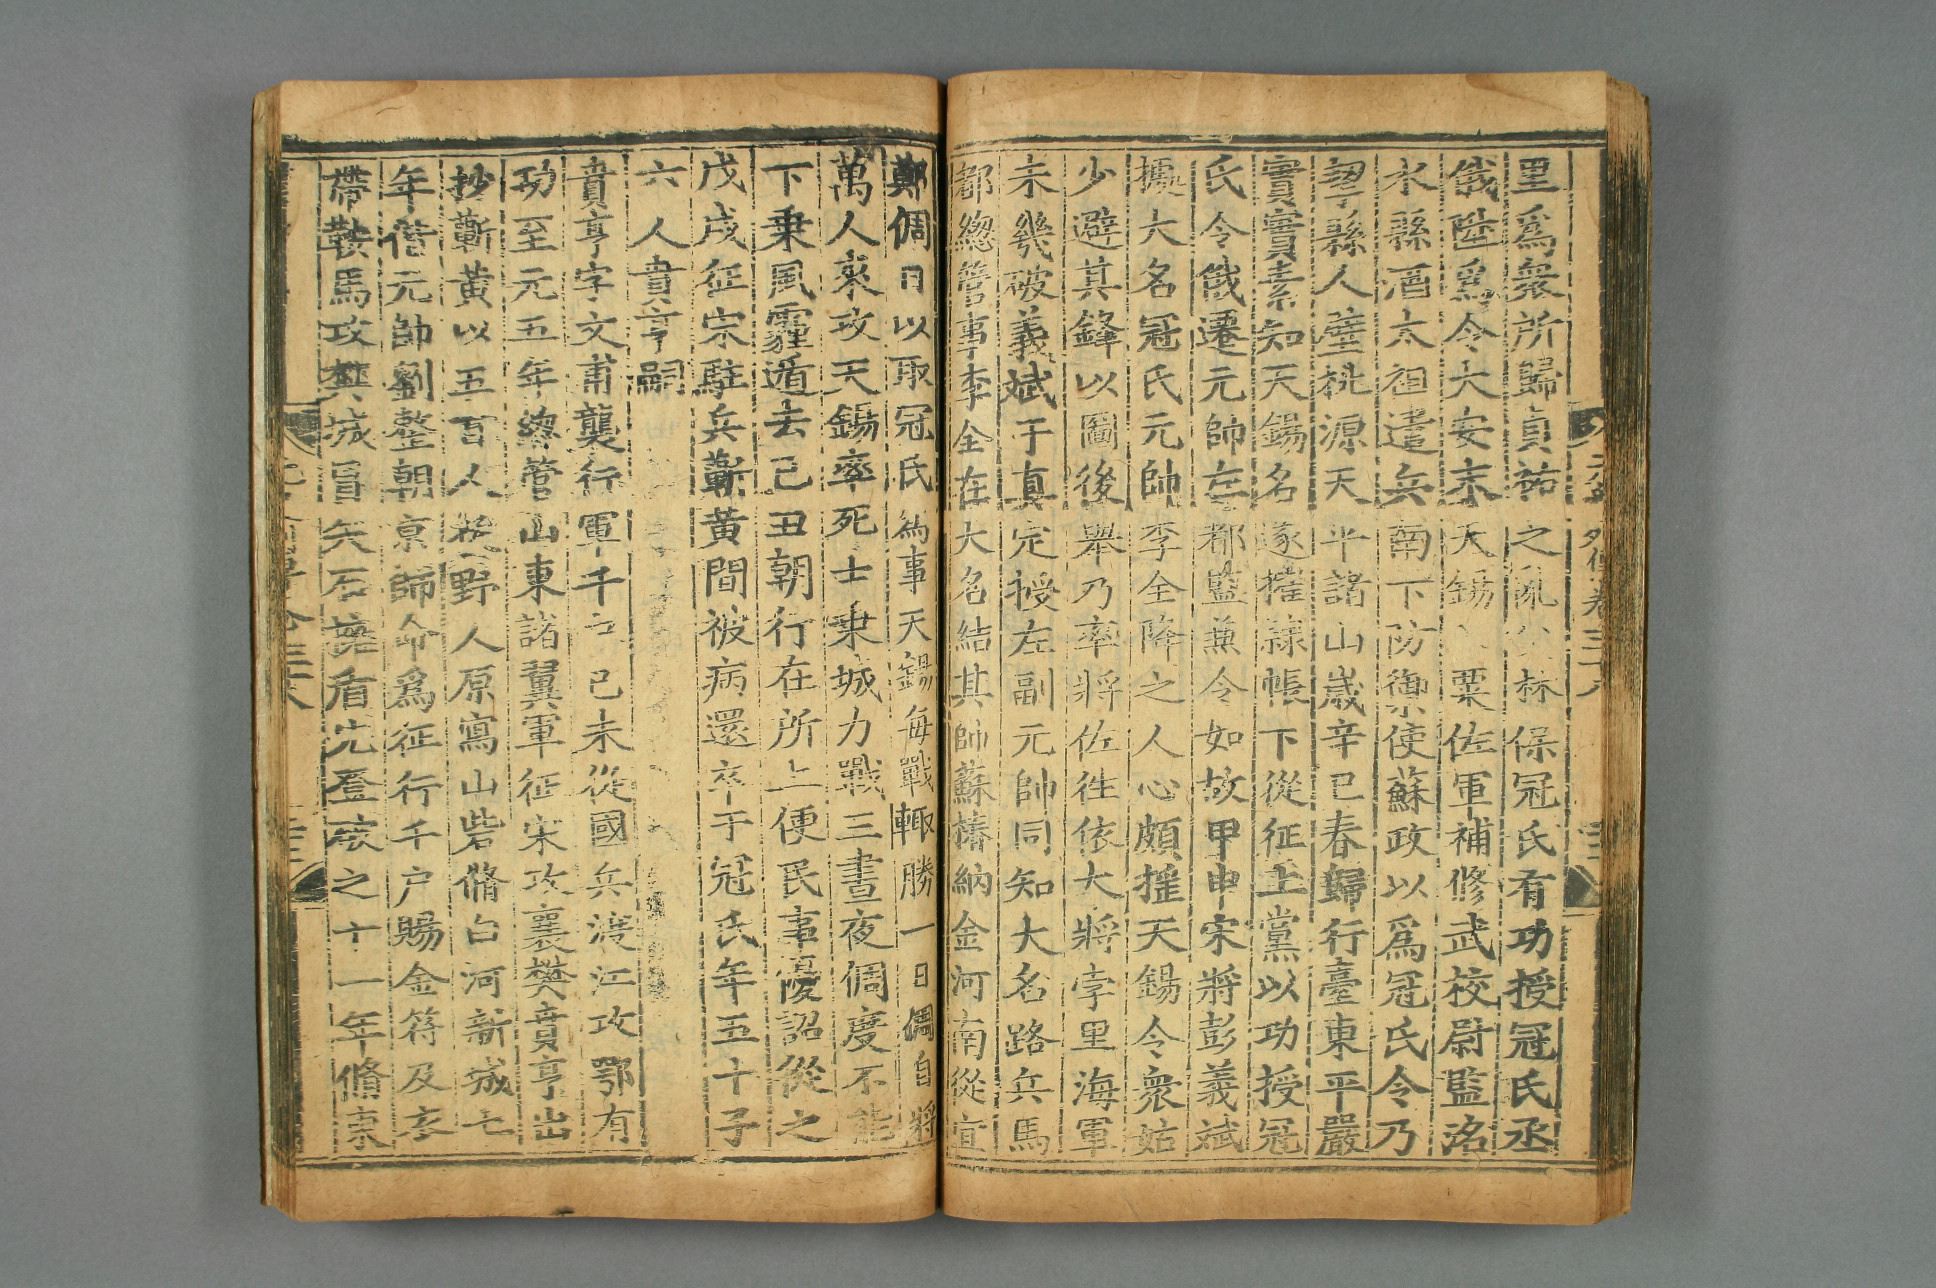 里爲衆所歸貞祐之亂父林保冠氏有功授冠氏丞
俄陞爲令大安末天錫入粟佐軍補修武校尉監洺
水縣酒太祖遣兵南下防禦使蘇政以爲冠氏令乃
挈縣人壁桃源天平諸山歲辛巳春歸行臺東平嚴
實實素知天錫名遂擢隷帳下從征上黨以功授冠
氏令俄遷元帥左都監兼令如故甲申宋將彭義斌
據大名冠氏元帥李全降之人心頗揺天錫令衆姑
少避其鋒以圖後舉乃率將佐徃依大將孛里海軍
未幾破義斌于真定授左副元帥同知大名路兵馬
都緫管事李全在大名結其帥蘇椿納金河南從宜
鄭倜日以取冠氏為事天錫每戰輙勝一日倜自將
萬人來攻天錫率死士乗城力戰三晝夜倜度不能
下乗風霾遁去己丑朝行在所上便民事優詔從之
戊戌征宋駐兵蘄黃間被病還卒于冠氏年五十子
六人賁亨嗣
賁亨字文甫襲行軍千戸己未從國兵渡江攻鄂有
功至元五年緫管山東諸翼軍征宋攻襄樊賁亨出
抄蘄黃以五百人 野人原寫山砦脩白河新城七
年偕元帥劉整朝京師命爲征行千户賜金符及衣
帶鞍馬攻樊城冒矢石擁盾先登破之十一年脩東